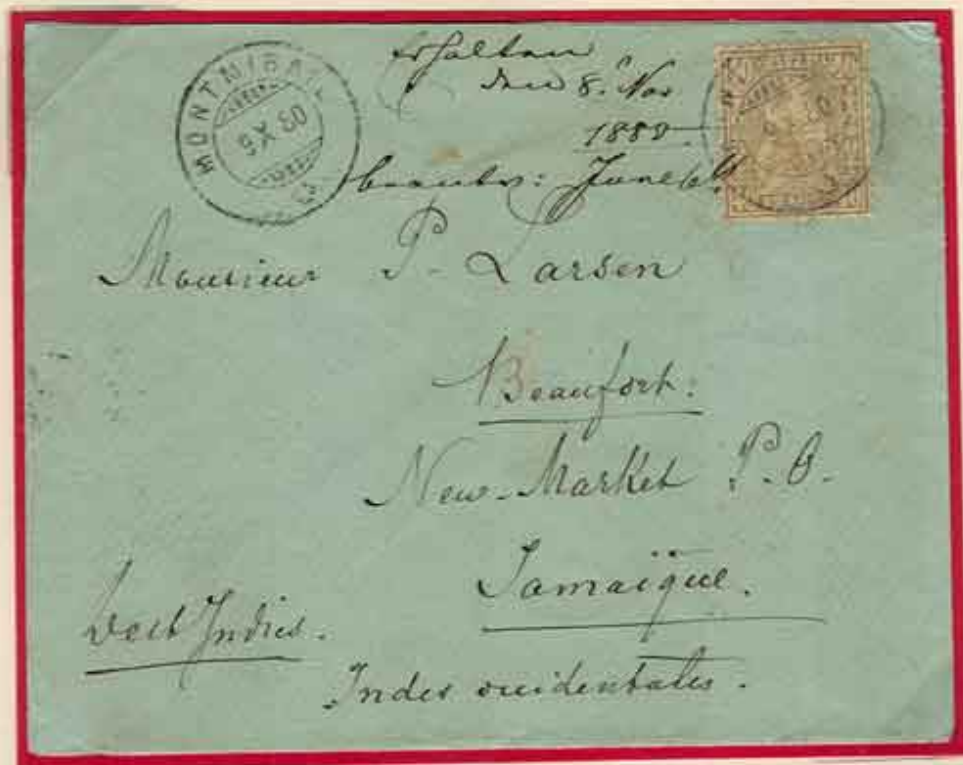 MONTMIRAIL
9 X 80
Erhalten
den 8. Nov
1880
June
Monsieur P. Larsen
Beaufort:
New-Market P.O.
Jamaïque.
West Indies.
Indes occidentales.